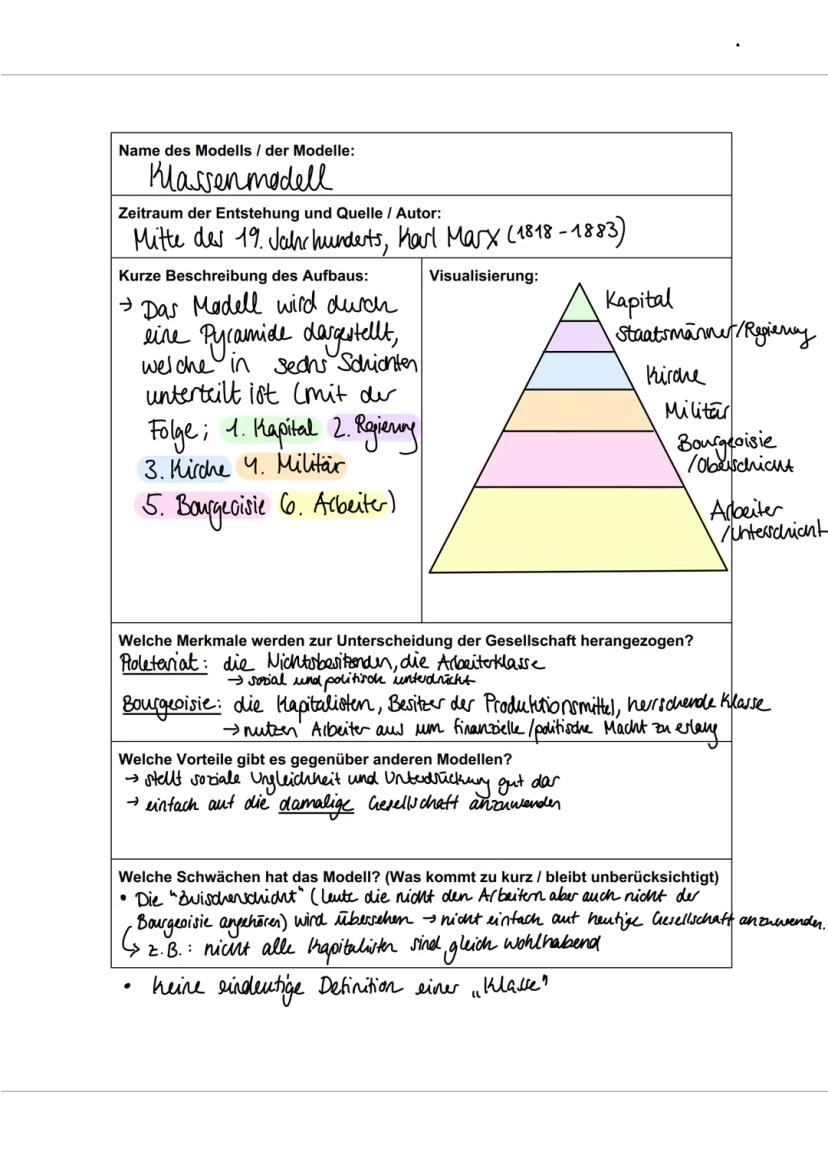 Name des Modells / der Modelle:
Klassenmodell
Zeitraum der Entstehung und Quelle / Autor:
Mitte des 19. Jahrhunderts, Karl Marx (1818 - 1883)
Kurze Beschreibung des Aufbaus:
→ Das Modell wird durch
eine Pyramide dargestellt,
welche in sechs Schichten
unterteilt ist (mit der
Folge; 1. Kapital 2. Regierung
3. Kirche 4. Militär
5. Bourgeoisie 6. Arbeiter)
Visualisierung:
Kapital
Staatsmänner/Regierung
Kirche
Militär
Bourgeoisie
/Oberschicht
Arbeiter
/Unterschicht
Welche Merkmale werden zur Unterscheidung der Gesellschaft herangezogen?
Proletariat: die Nichtsbesitzenden, die Arbeiterklasse
→ sozial und politisch unterdrückt
Bourgeoisie: die Kapitalisten, Besitzer der Produktionsmittel, herrschende Klasse
→ nutzen Arbeiter aus um finanzielle/politische Macht zu erlang
Welche Vorteile gibt es gegenüber anderen Modellen?
→ stellt soziale Ungleichheit und Unterdrückung gut dar
→ einfach auf die damalige Gesellschaft anzuwenden
Welche Schwächen hat das Modell? (Was kommt zu kurz / bleibt unberücksichtigt)
• Die "Zwischenschicht" (Leute die nicht den Arbeitern aber auch nicht der
Bourgeoisie angehören) wird übersehen → nicht einfach auf heutige Gesellschaft anzuwenden.
↳ z.B.: nicht alle Kapitalisten sind gleich wohlhabend
• keine eindeutige Definition einer „Klasse"